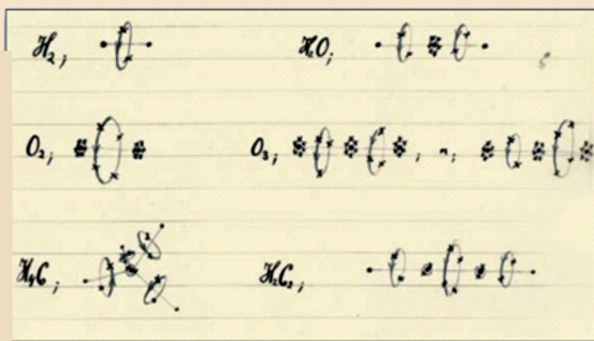 H₂; H₂O;
O₂; O₃;
H₄C; H₂C₂;